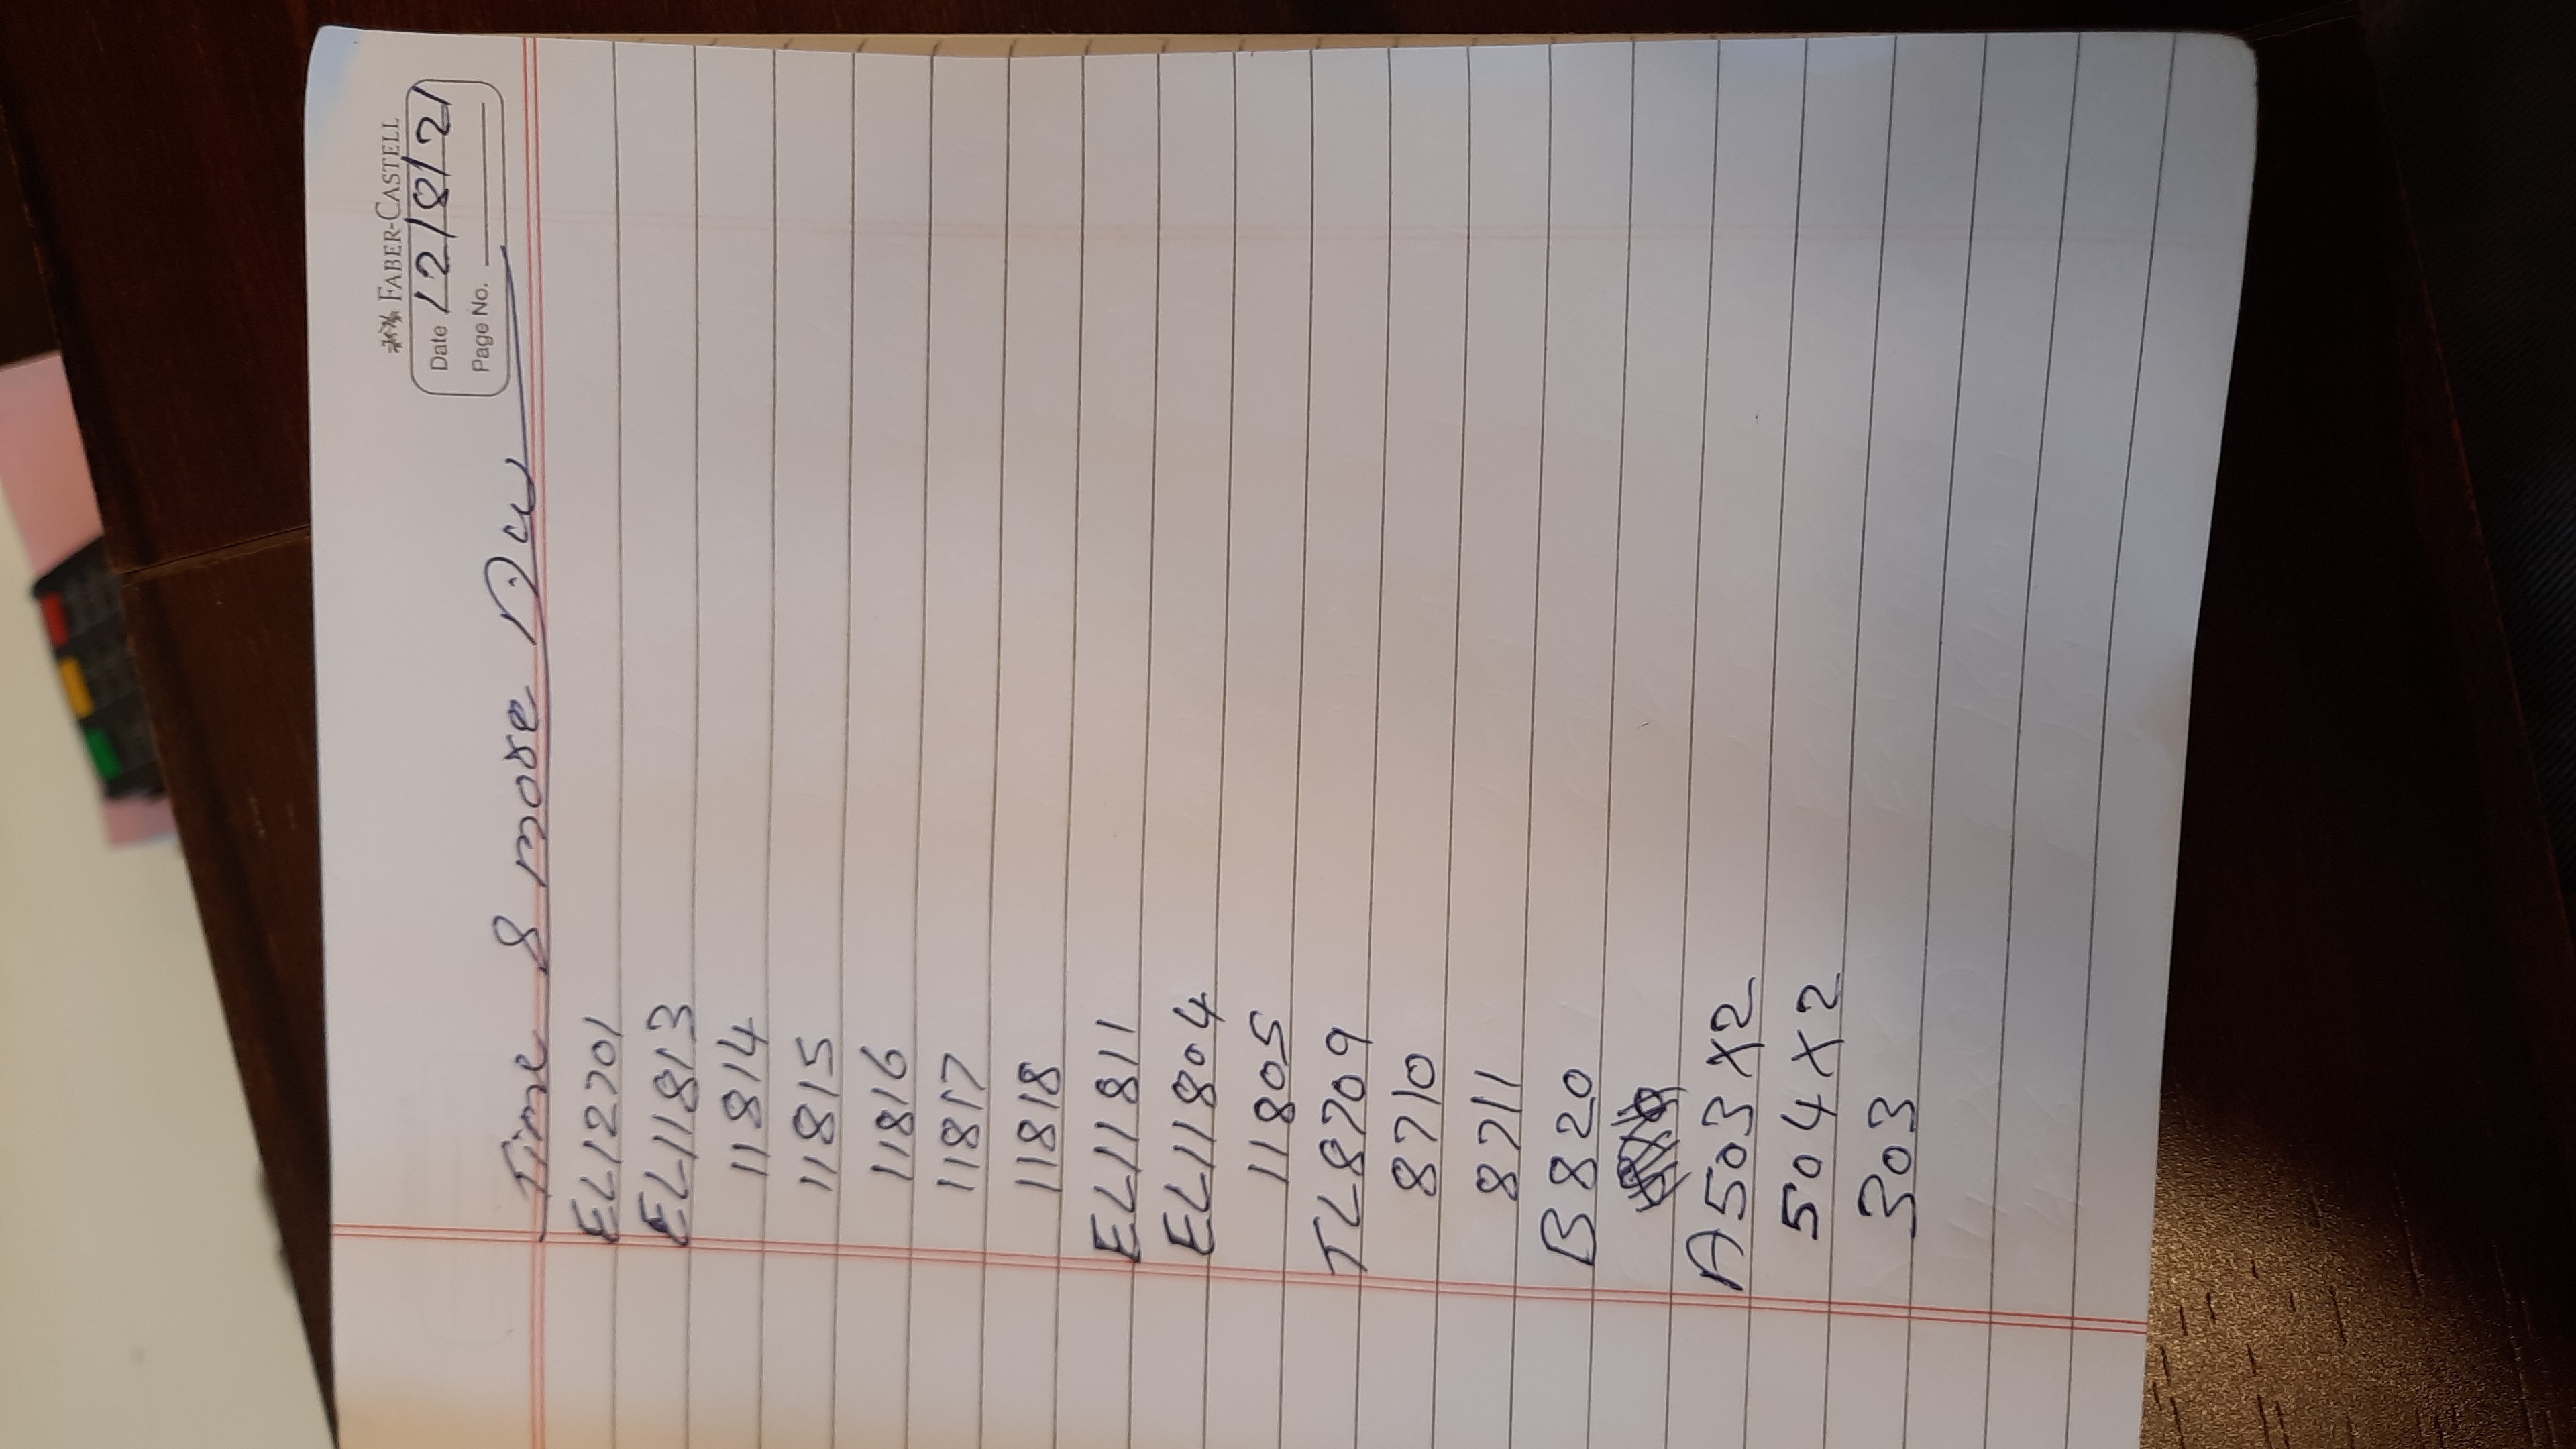 FABER-CASTELL
Date 12/8/21
Page No.
Time 8 more
EL12701
EL11813
11814
11815
11816
11817
11818
EL11811
EL11804
11805
TL8709
8710
8711
B820
A503X2
504X2
303